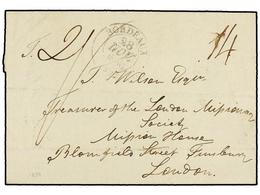 BORDEAUX
28
2/
14
J. Wilson Esqr.
Treasurer of the London Missionary
Society
Mission House
Blomfield Street Finsbury
London.